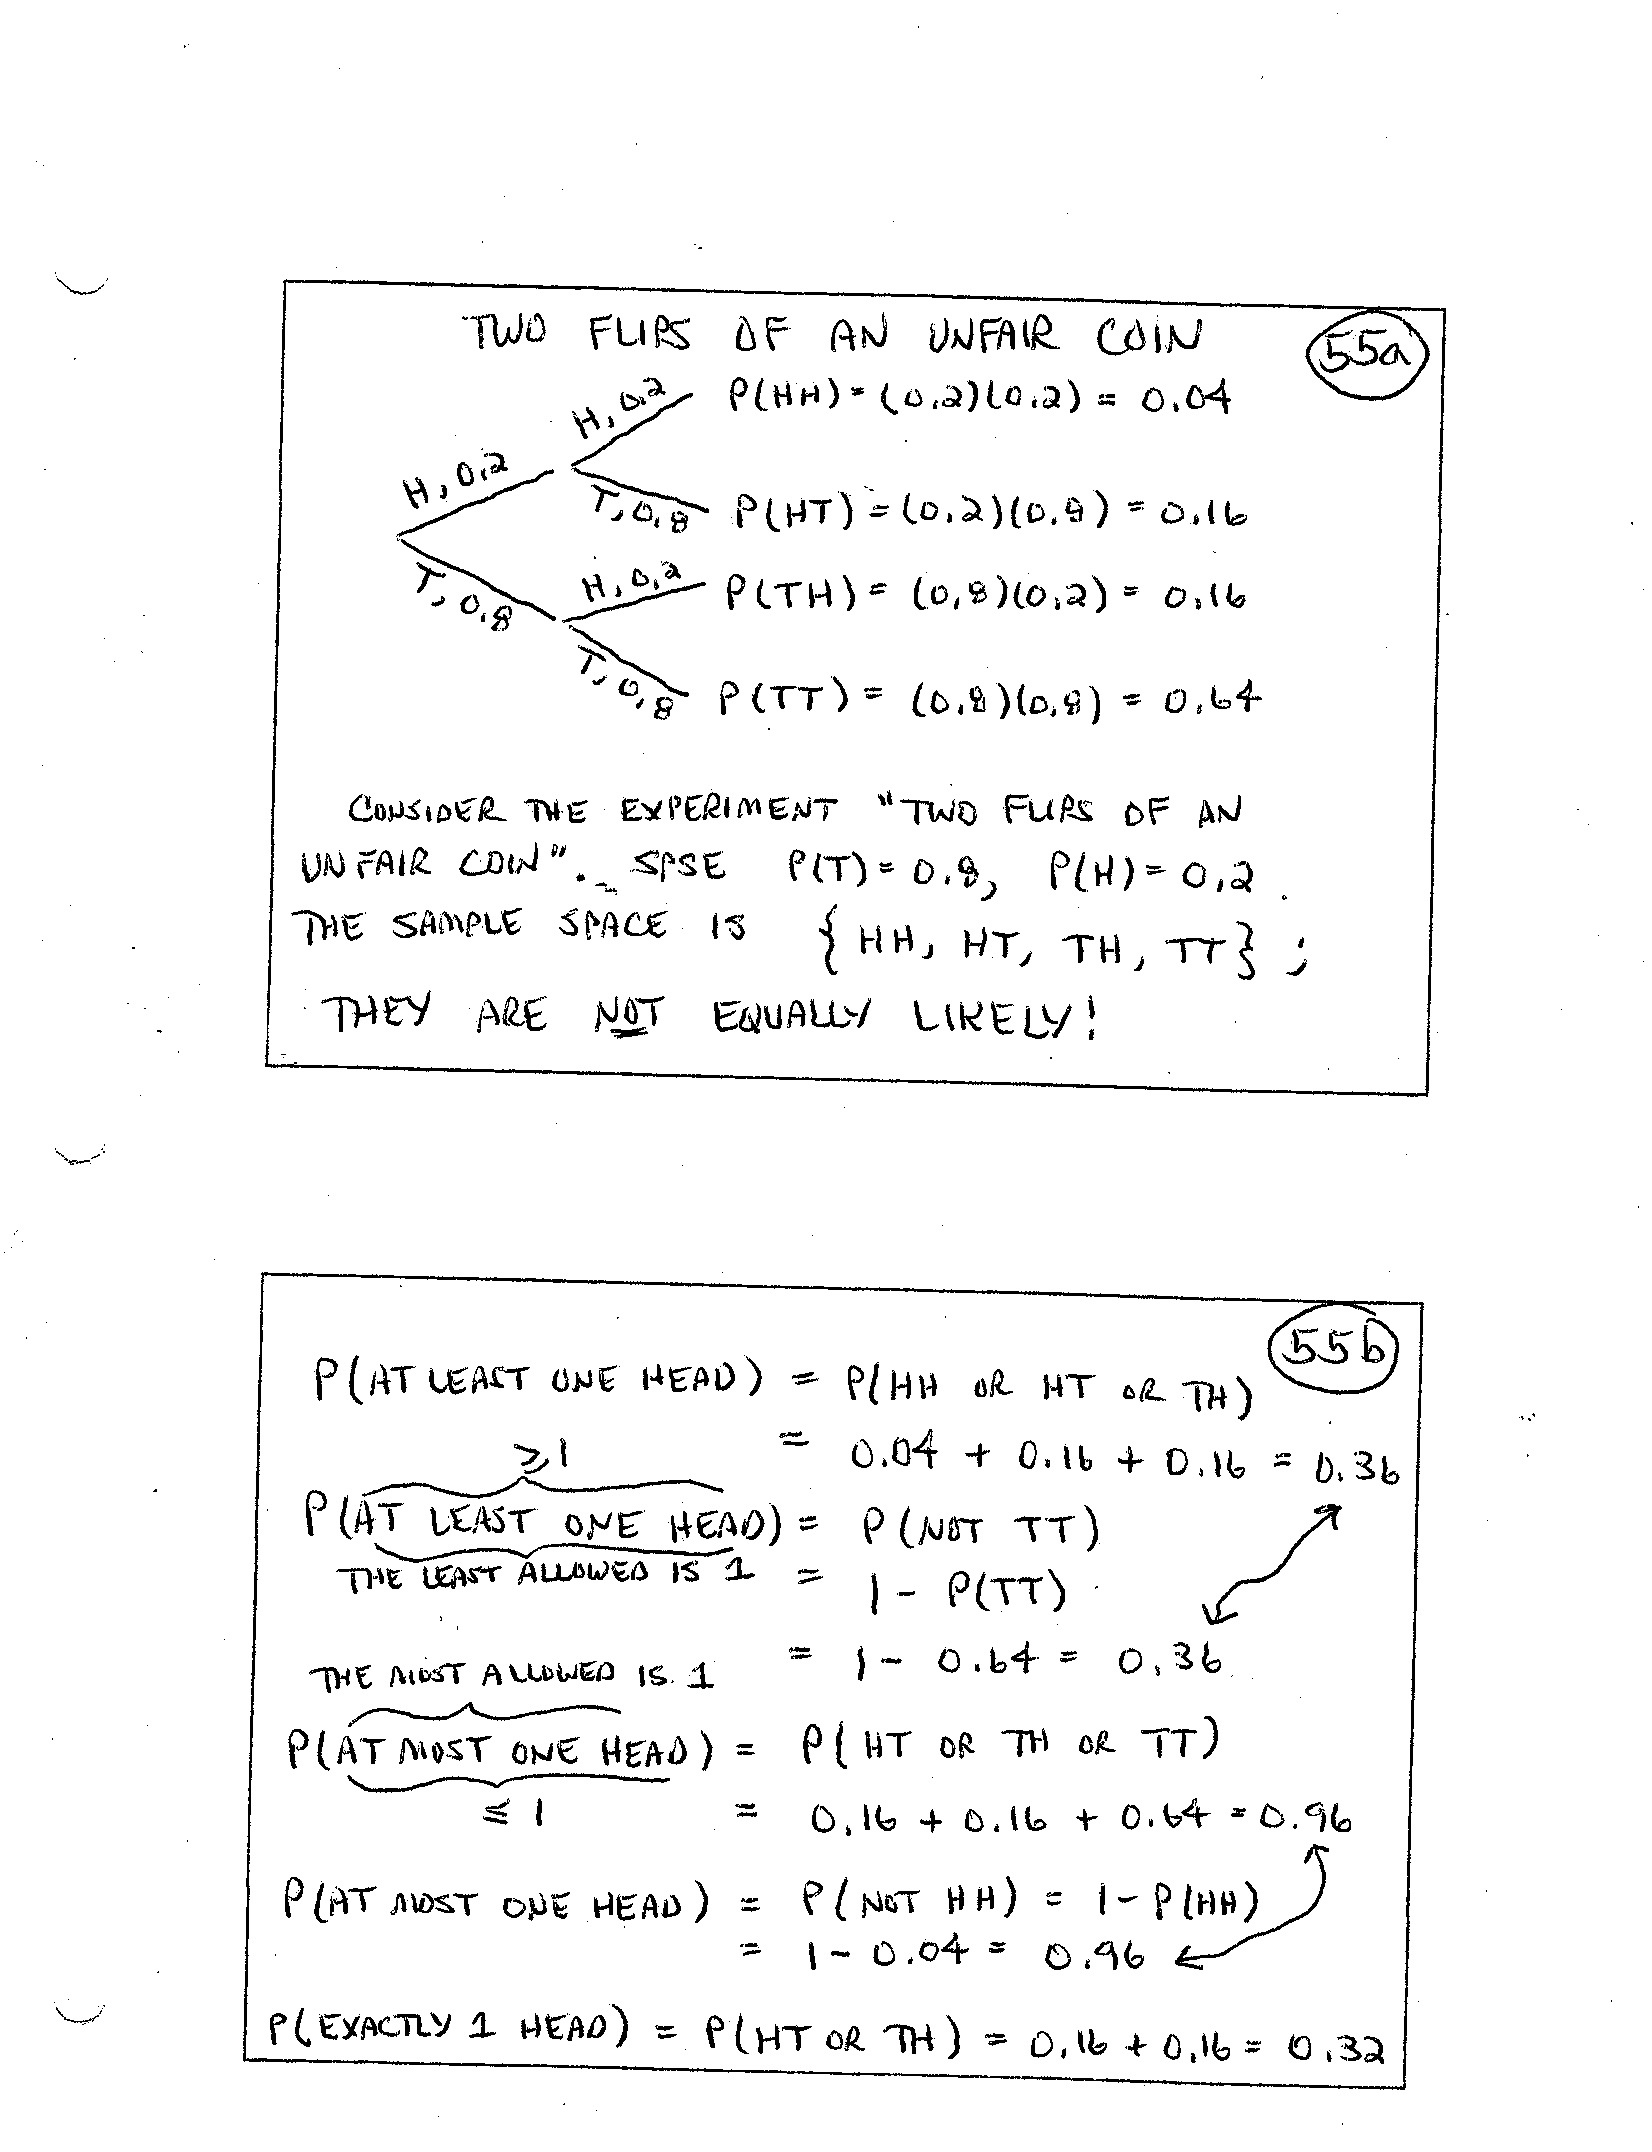 TWO FLIPS OF AN UNFAIR COIN
55a
H, 0.2
P(HH) = (0.2)(0.2) = 0.04
H, 0.2
T, 0.8
P(HT) = (0.2)(0.8) = 0.16
T, 0.8
H, 0.2
P(TH) = (0.8)(0.2) = 0.16
T, 0.8
P(TT) = (0.8)(0.8) = 0.64
CONSIDER THE EXPERIMENT "TWO FLIPS OF AN
UNFAIR COIN". SPSE P(T) = 0.8, P(H) = 0.2.
THE SAMPLE SPACE IS {HH, HT, TH, TT};
THEY ARE NOT EQUALLY LIKELY!
55b
P(AT LEAST ONE HEAD) = P(HH OR HT OR TH)
= 0.04 + 0.16 + 0.16 = 0.36
≥1
P(AT LEAST ONE HEAD) = P(NOT TT)
THE LEAST ALLOWED IS 1 = 1 - P(TT)
= 1 - 0.64 = 0.36
THE MOST ALLOWED IS 1
P(AT MOST ONE HEAD) = P(HT OR TH OR TT)
≤ 1 = 0.16 + 0.16 + 0.64 = 0.96
P(AT MOST ONE HEAD) = P(NOT HH) = 1 - P(HH)
= 1 - 0.04 = 0.96
P(EXACTLY 1 HEAD) = P(HT OR TH) = 0.16 + 0.16 = 0.32